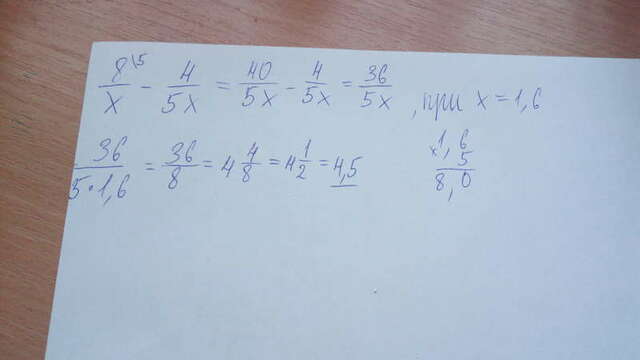 8\5/x - 4/5x = 40/5x - 4/5x = 36/5x , при x = 1,6
36/5·1,6 = 36/8 = 4 4/8 = 4 1/2 = 4,5
×1,6
5
8,0